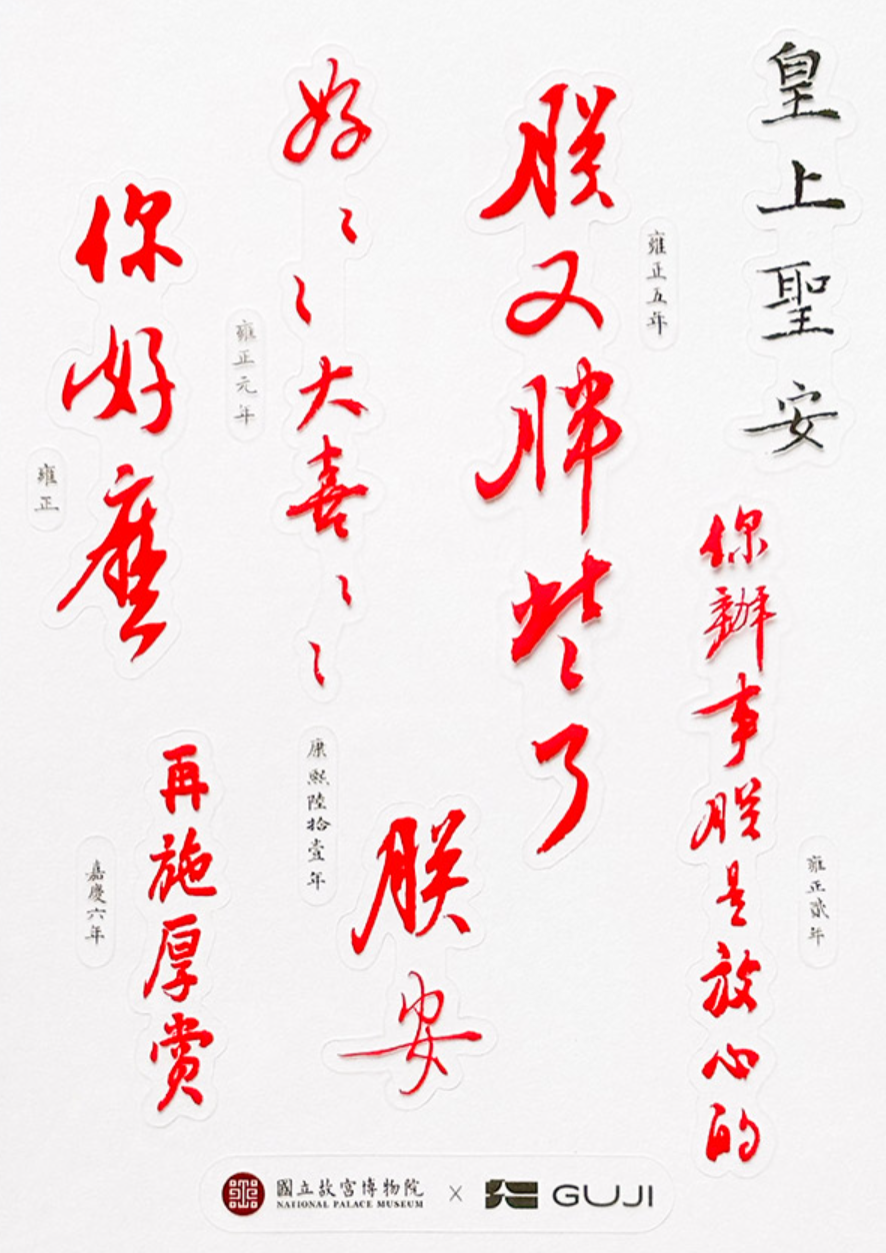 皇上聖安
雍正五年
朕又胖些了
你辦事朕是放心的
雍正貳年
好〻〻大喜〻〻
雍正元年
你好麼
雍正
康熙陸拾壹年
朕安
再施厚賞
嘉慶六年
國立故宮博物院
NATIONAL PALACE MUSEUM
x
GUJI